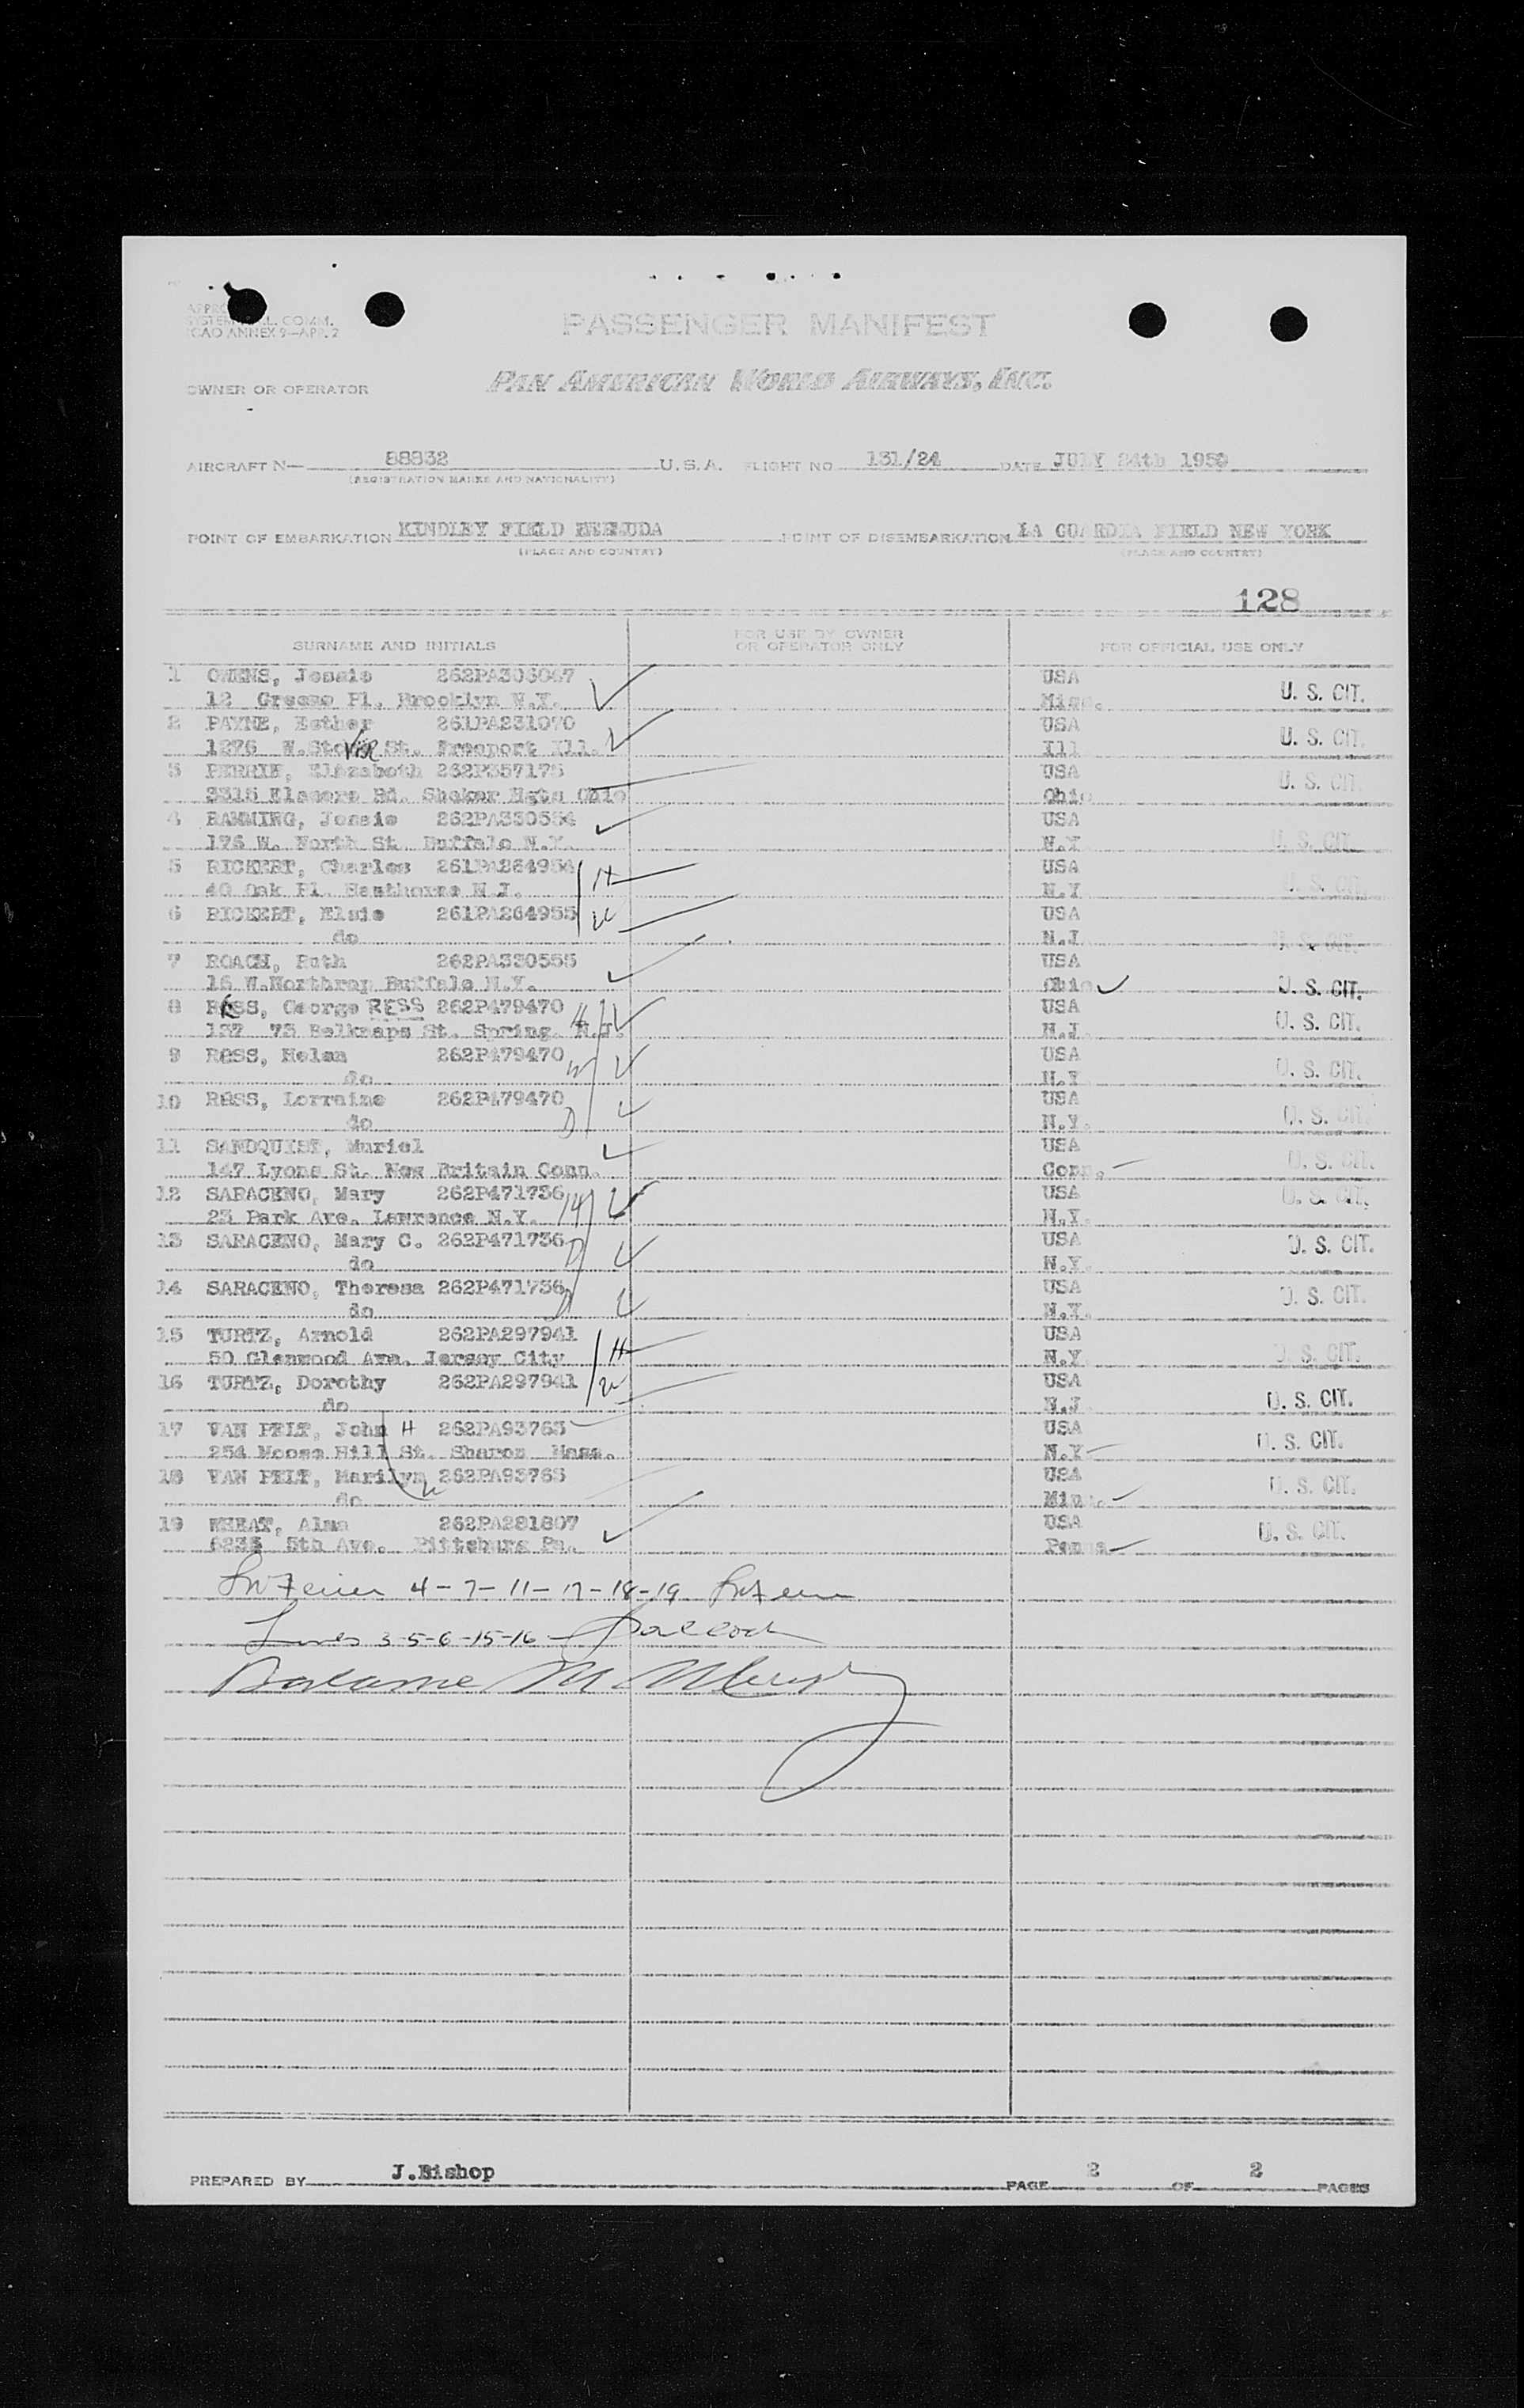 PASSENGER MANIFEST
ICAO ANNEX 9—APP. 2
OWNER OR OPERATOR PAN AMERICAN WORLD AIRWAYS, INC.
AIRCRAFT N— 88832 U.S.A. FLIGHT NO 131/24 DATE JULY 24th 1950
(REGISTRATION MARKS AND NATIONALITY)
POINT OF EMBARKATION KINDLEY FIELD BERMUDA POINT OF DISEMBARKATION LA GUARDIA FIELD NEW YORK
(PLACE AND COUNTRY) (PLACE AND COUNTRY)
128
SURNAME AND INITIALS FOR USE BY OWNER OR OPERATOR ONLY FOR OFFICIAL USE ONLY
1 OWENS, Jessie 262PA306067 USA
12 Pl. Brooklyn N.Y. U. S. CIT.
2 PAYNE, Esther 261PA231070 USA
1276 St. Freeport Ill. Ill U. S. CIT.
3 PERRIN, Elizabeth 262P357175 USA
3315 Rd. Shaker Hgts Ohio Ohio U. S. CIT.
4 RAMMING, Jessie 262PA330554 USA
176 W. North St. Buffalo N.Y. N.Y U. S. CIT.
5 RICKERT, Charles 261PA264954 H USA
40 Oak Pl. Hawthorne N.J. N.Y U. S. CIT.
6 RICKERT, Elsie 261PA264955 W USA
do N.J U. S. CIT.
7 ROACH, Ruth 262PA330555 USA
16 W.Northrup Buffalo N.Y. Ohio U. S. CIT.
8 RESS, George RESS 262P479470 H USA
137 73 Belknaps St. Spring. N.J. N.J. U. S. CIT.
9 RESS, Helen 262P479470 W USA
do N.Y U. S. CIT.
10 RESS, Lorraine 262P479470 D USA
do N.Y. U. S. CIT.
11 SANDQUIST, Muriel USA
147 Lyons St. New Britain Conn. Conn. U. S. CIT.
12 SARACENO, Mary 262P471736 USA
23 Park Ave. Lawrence N.Y. N.Y. U. S. CIT.
13 SARACENO, Mary C. 262P471736 D USA
do N.Y. U. S. CIT.
14 SARACENO, Theresa 262P471736 D USA
do N.Y. U. S. CIT.
15 TURTZ, Arnold 262PA297941 H USA
50 Glenwood Ave. Jersey City N.Y. U. S. CIT.
16 TURTZ, Dorothy 262PA297941 W USA
do N.J U. S. CIT.
17 VAN PELT, John H 262PA93763 USA
254 Moose Hill St. Sharon Mass. N.Y U. S. CIT.
18 VAN PELT, Marilyn 262PA93763 W USA
do Minn. U. S. CIT.
19 WHEAT, Alma 262PA281807 USA
5th Ave. Pittsburg Pa. Penna U. S. CIT.
4-7-11-17-18-19
Lines 3-5-6-15-16
Balance M
PREPARED BY J.Bishop PAGE 2 OF 2 PAGES